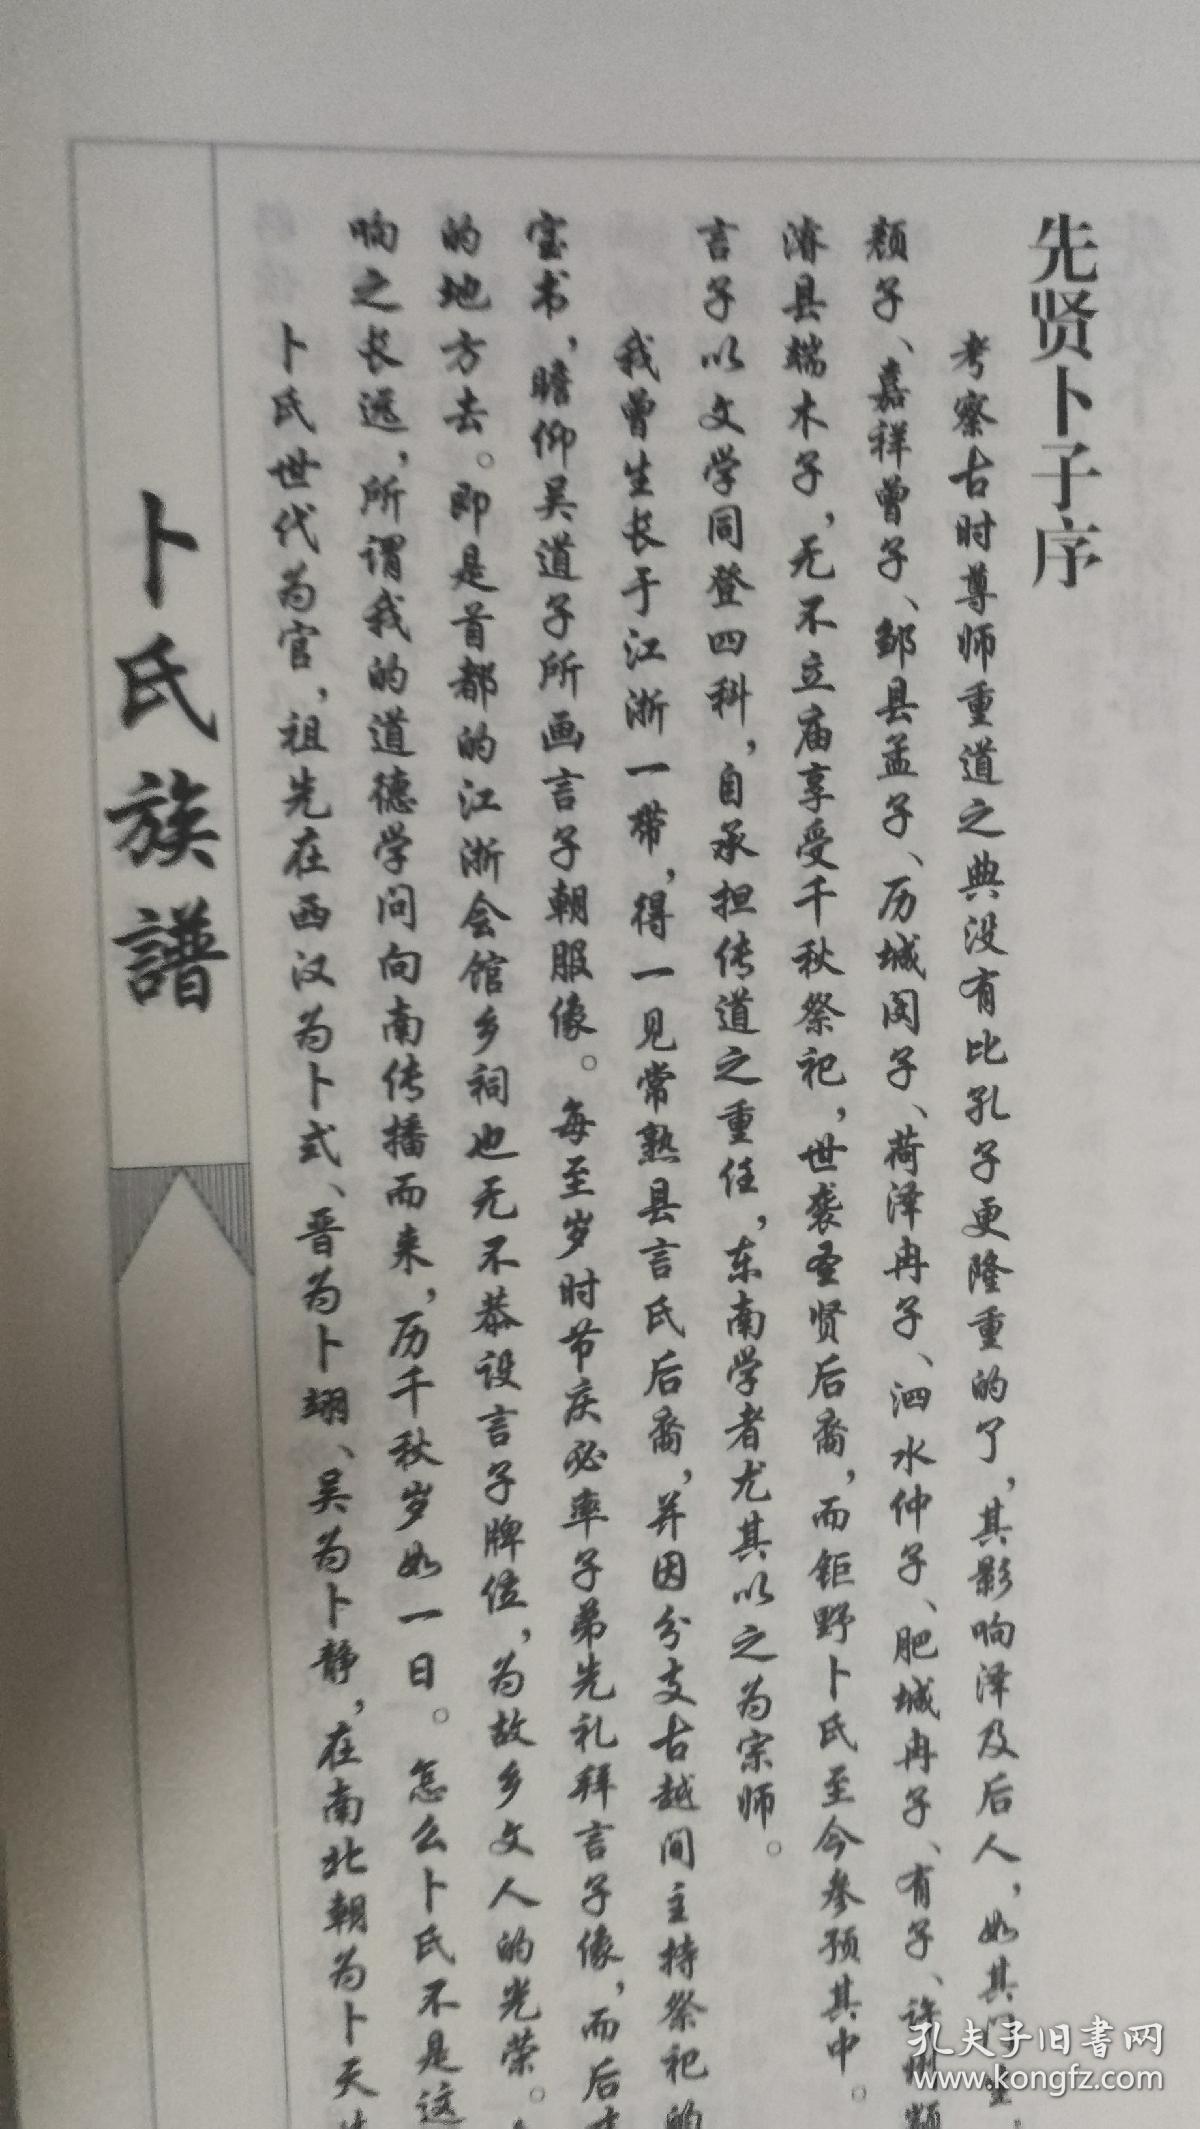 先贤卜子序
考察古时尊师重道之典没有比孔子更隆重的了，其影响泽及后人，如其门生，
颜子、嘉祥曾子、邹县孟子、历城闵子、菏泽冉子、泗水仲子、肥城冉子、有子、许州颛
濬县端木子，无不立庙享受千秋祭祀，世袭圣贤后裔，而钜野卜氏至今参预其中。
言子以文学同登四科，自承担传道之重任，东南学者尤其以之为宗师。
我曾生长于江浙一带，得一见常熟县言氏后裔，并因分支古越间主持祭祀的
宝书，瞻仰吴道子所画言子朝服像。每至岁时节庆必率子弟先礼拜言子像，而后才
的地方去。即是首都的江浙会馆乡祠也无不恭设言子牌位，为故乡文人的光荣。
响之长远，所谓我的道德学问向南传播而来，历千秋岁如一日。怎么卜氏不是这
卜氏世代为官，祖先在西汉为卜式、晋为卜翊、吴为卜静，在南北朝为卜天
卜氏族譜
孔夫子旧書网
www.kongfz.com